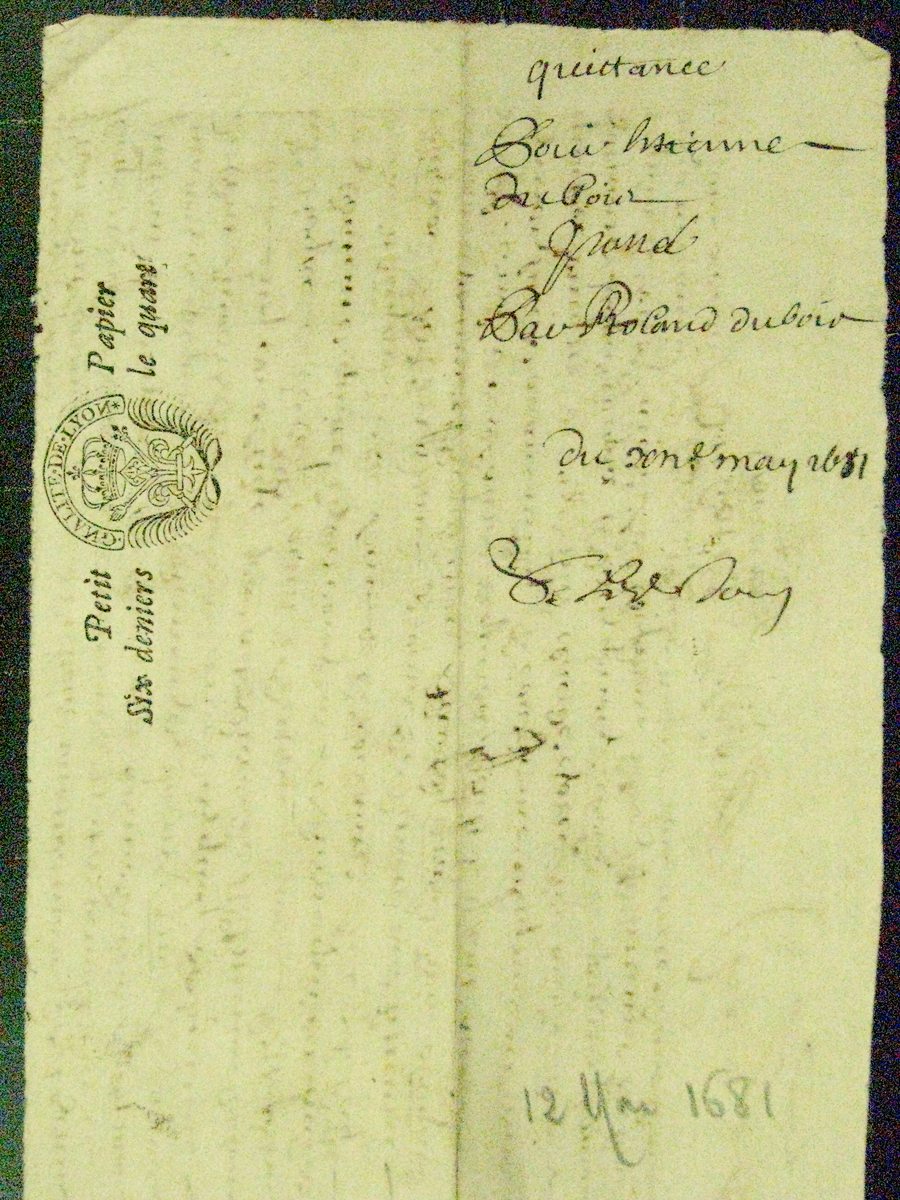 quittance
Pour estienne
du bois
grand
Par Roland dubois
du xiie may 1681
12 Mai 1681
Petit Papier
Six deniers le quart
GNALITE·DE·LYON